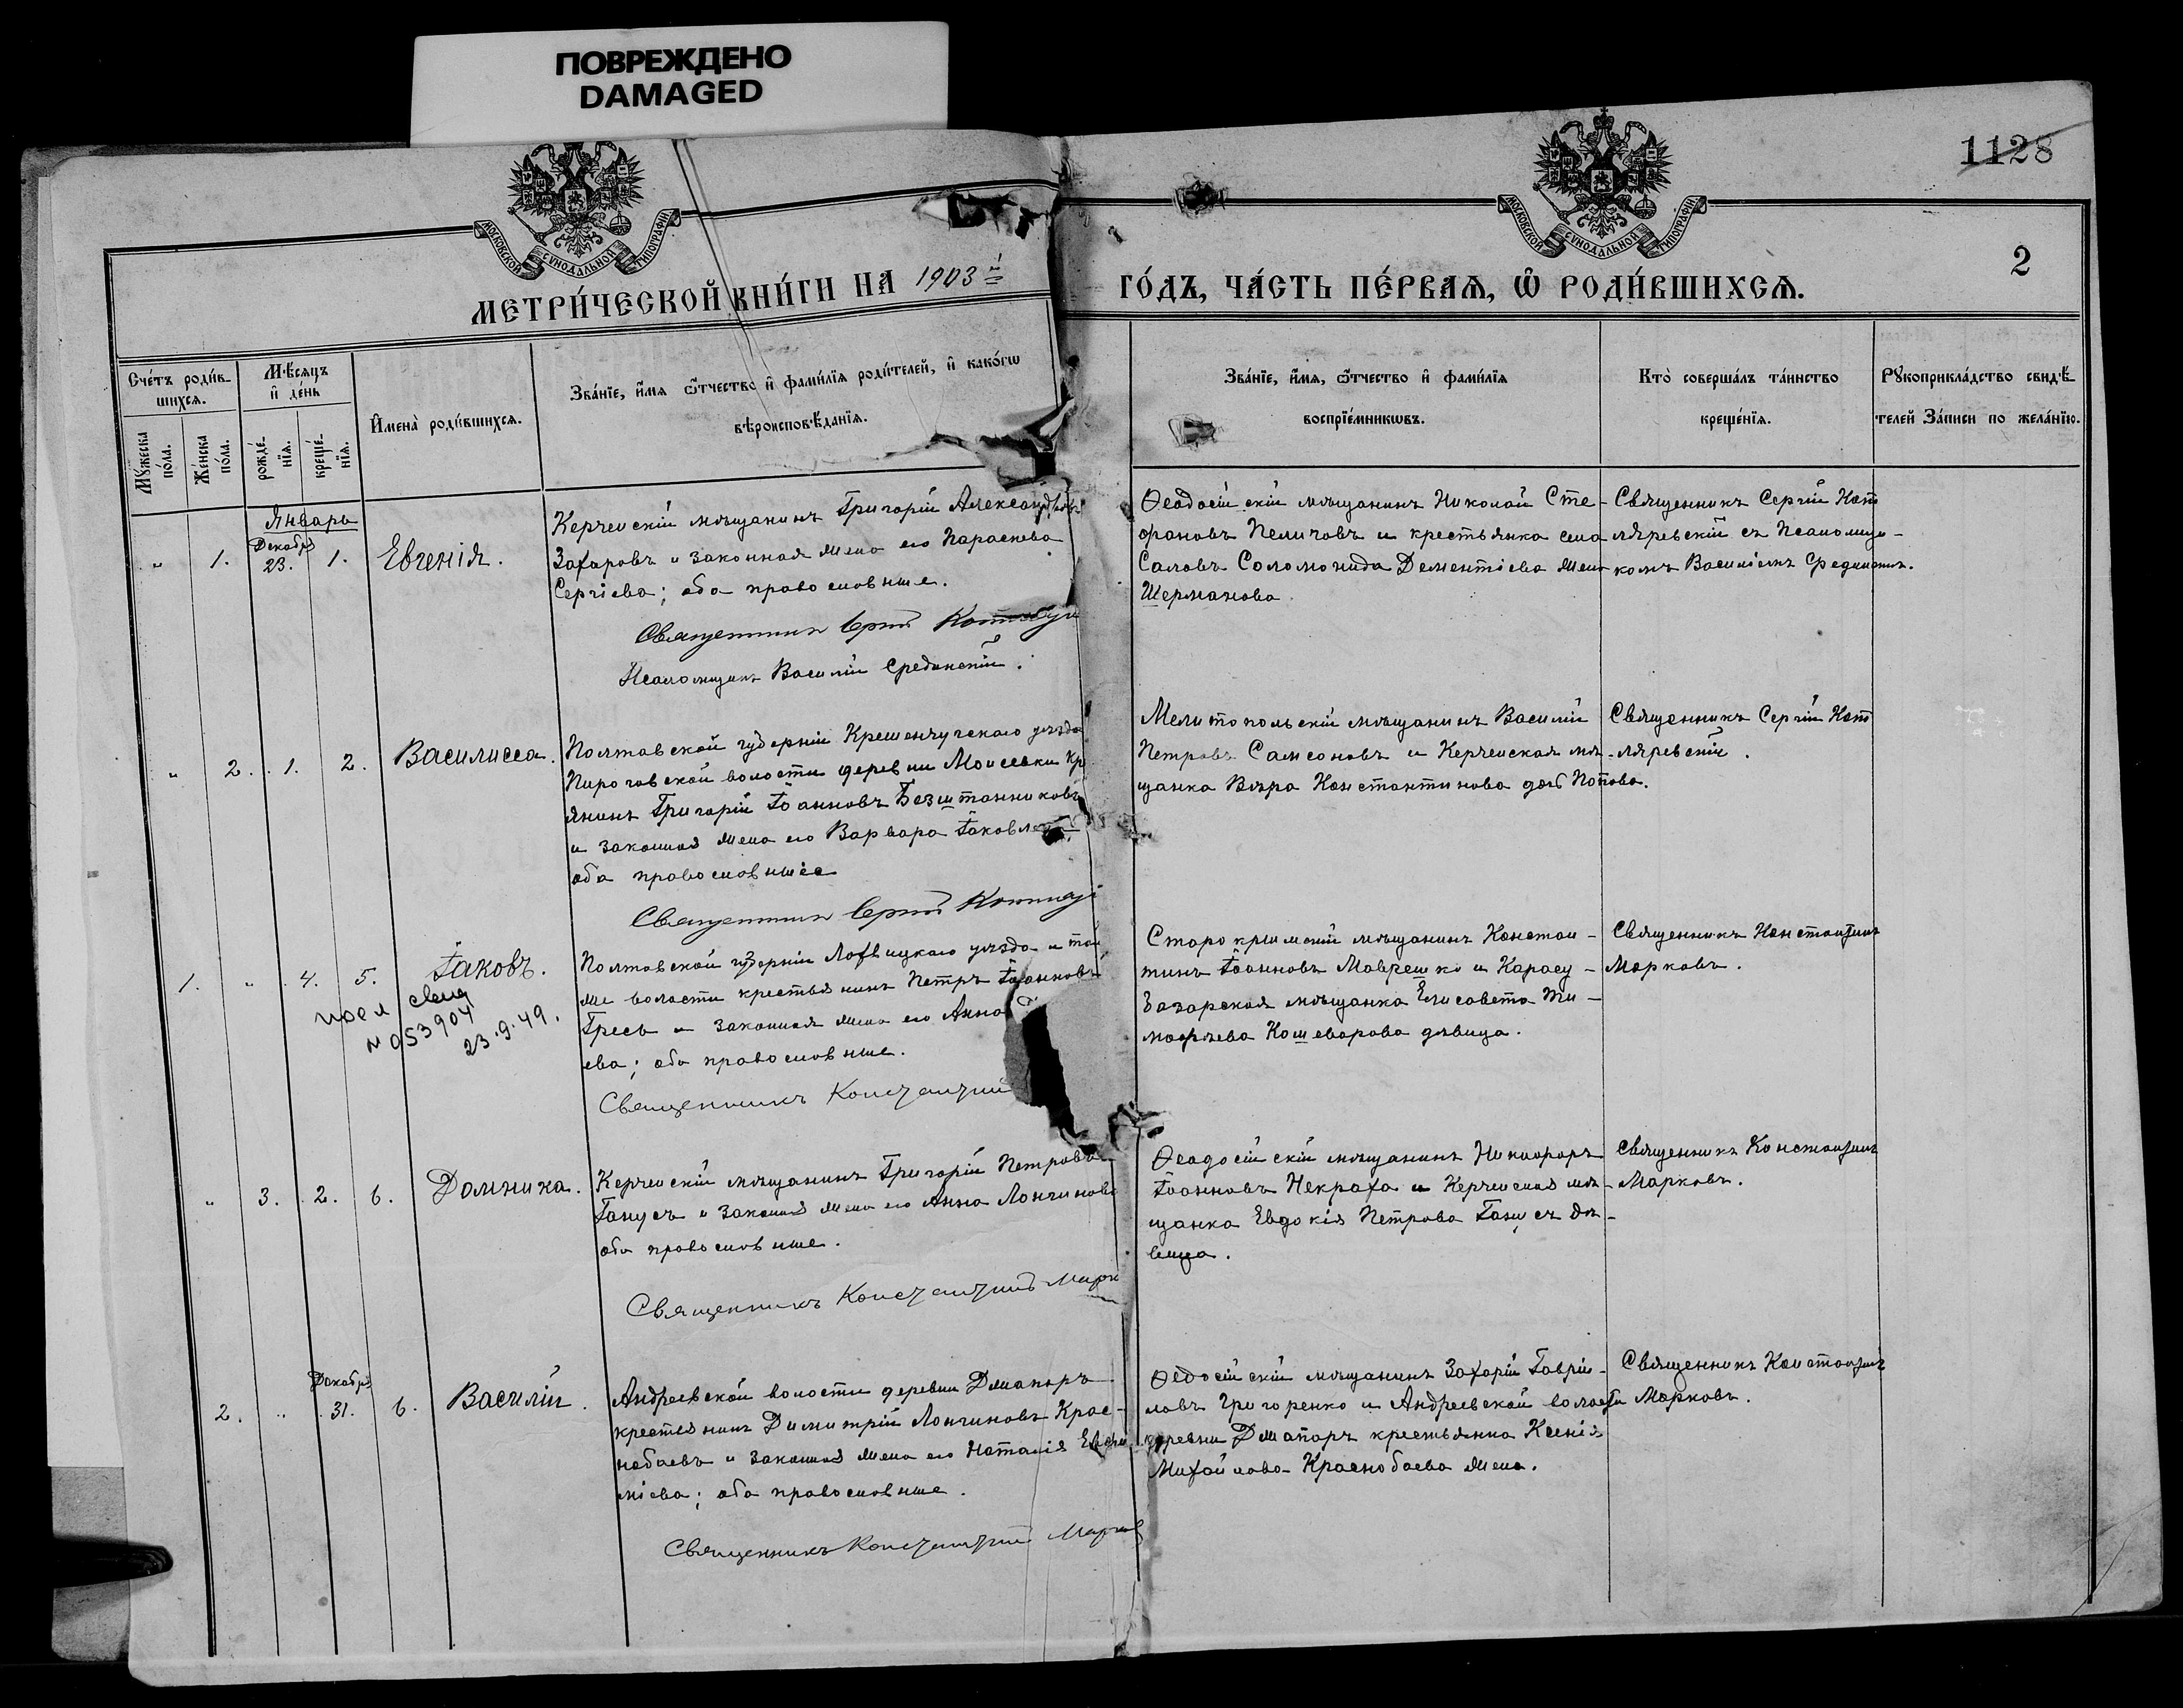 ПОВРЕЖДЕНО
DAMAGED
1128
2
МОСКОВСКОЙ СѴНОДАЛЬНОЙ ТИПОГРАФІИ
МОСКОВСКОЙ СѴНОДАЛЬНОЙ ТИПОГРАФІИ
МЕТРИ́ЧЕСКОЙ КНИ́ГИ НА 1903 й
ГО́ДЪ, ЧА́СТЬ ПЕ́РВАѦ, Ѡ҆ РОДИ́ВШИХСѦ.
Сче́тъ роди́в-
шихсѧ.
Мꙋ́жеска по́ла.
Же́нска по́ла.
Мѣ́сѧцъ и҆ де́нь
рожде́-
нїѧ.
креще́-
нїѧ.
И҆мена̀ роди́вшихсѧ.
Зва́нїе, и҆́мѧ ѻ҆́тчество и҆ фами́лїѧ роди́телей, и҆ како́гѡ
вѣроисповѣ́данїѧ.
Зва́нїе, и҆́мѧ, ѻ҆́тчество и҆ фами́лїѧ
воспрїе́мникѡвъ.
Кто̀ соверша́лъ та́инство
креще́нїѧ.
Рꙋкоприкла́дство свидѣ́-
телей За́писи по жела́нїю.
Январь
„ 1. Декабря 23. 1. Евгенія.
Керченскій мѣщанинъ Григорій Александровъ
Захаровъ и законная жена его Параскева
Сергіева; оба православные.
Священникъ Сергій
Псаломщикъ Василій Срединскій.
Ѳеодосійскій мѣщанинъ Николай Сте-
фановъ Пеличовъ и крестьянка села
Саловъ Соломонида Дементіева жена
Шерманова.
Священникъ Сергій Кот
ляревскій съ Псаломщи-
комъ Василіемъ Срединскимъ.
„ 2. 1. 2. Василисса.
Полтавской губерніи Кременчугскаго уѣзда
Пироговской волости деревни Моисевки Кр
янинъ Григорій Іоанновъ Безштанниковъ
и законная жена его Варвара Іаковлева;
оба православные
Священникъ Сергій
Мелитопольскій мѣщанинъ Василій
Петровъ Самсоновъ и Керченская мѣ-
щанка Вѣра Константинова дочь Попова.
Священникъ Сергій Кот
ляревскій.
1. „ 4. 5. Іаковъ.
свид
N 053904
23.9.49.
Полтавской губерніи Лохвицкаго уѣзда и той
же волости крестьянинъ Петръ Іоанновъ
Гресь и законная жена его Анна
ева; оба православные.
Священникъ Константинъ
Старокрымскій мѣщанинъ Констан-
тинъ Іоанновъ Маврешко и Карасу-
базарская мѣщанка Елисавета Ти-
моѳеева Кошеварова дѣвица.
Священникъ Константинъ
Марковъ.
„ 3. 2. 6. Домника.
Керченскій мѣщанинъ Григорій Петровъ
Ганусъ и законная жена его Анна Лонгинова
оба православные.
Священникъ Константинъ Марк
Ѳеодосійскій мѣщанинъ Никифоръ
Іоанновъ Некраха и Керченская мѣ-
щанка Евдокія Петрова Ганусъ дѣ-
вица.
Священникъ Константинъ
Марковъ.
2. „ Декабря 31. 6. Василій.
Андреевской волости деревни Джапаръ
крестьянинъ Димитрій Лонгиновъ Крас-
нобаевъ и законная жена его Наталія Евѳи
міева; оба православные.
Священникъ Константинъ Марков
Ѳеодосійскій мѣщанинъ Захарій Гаврі-
ловъ Григоренко и Андреевской волости
деревни Джапаръ крестьянка Ксенія
Михайлова Краснобаева жена.
Священникъ Константинъ
Марковъ.